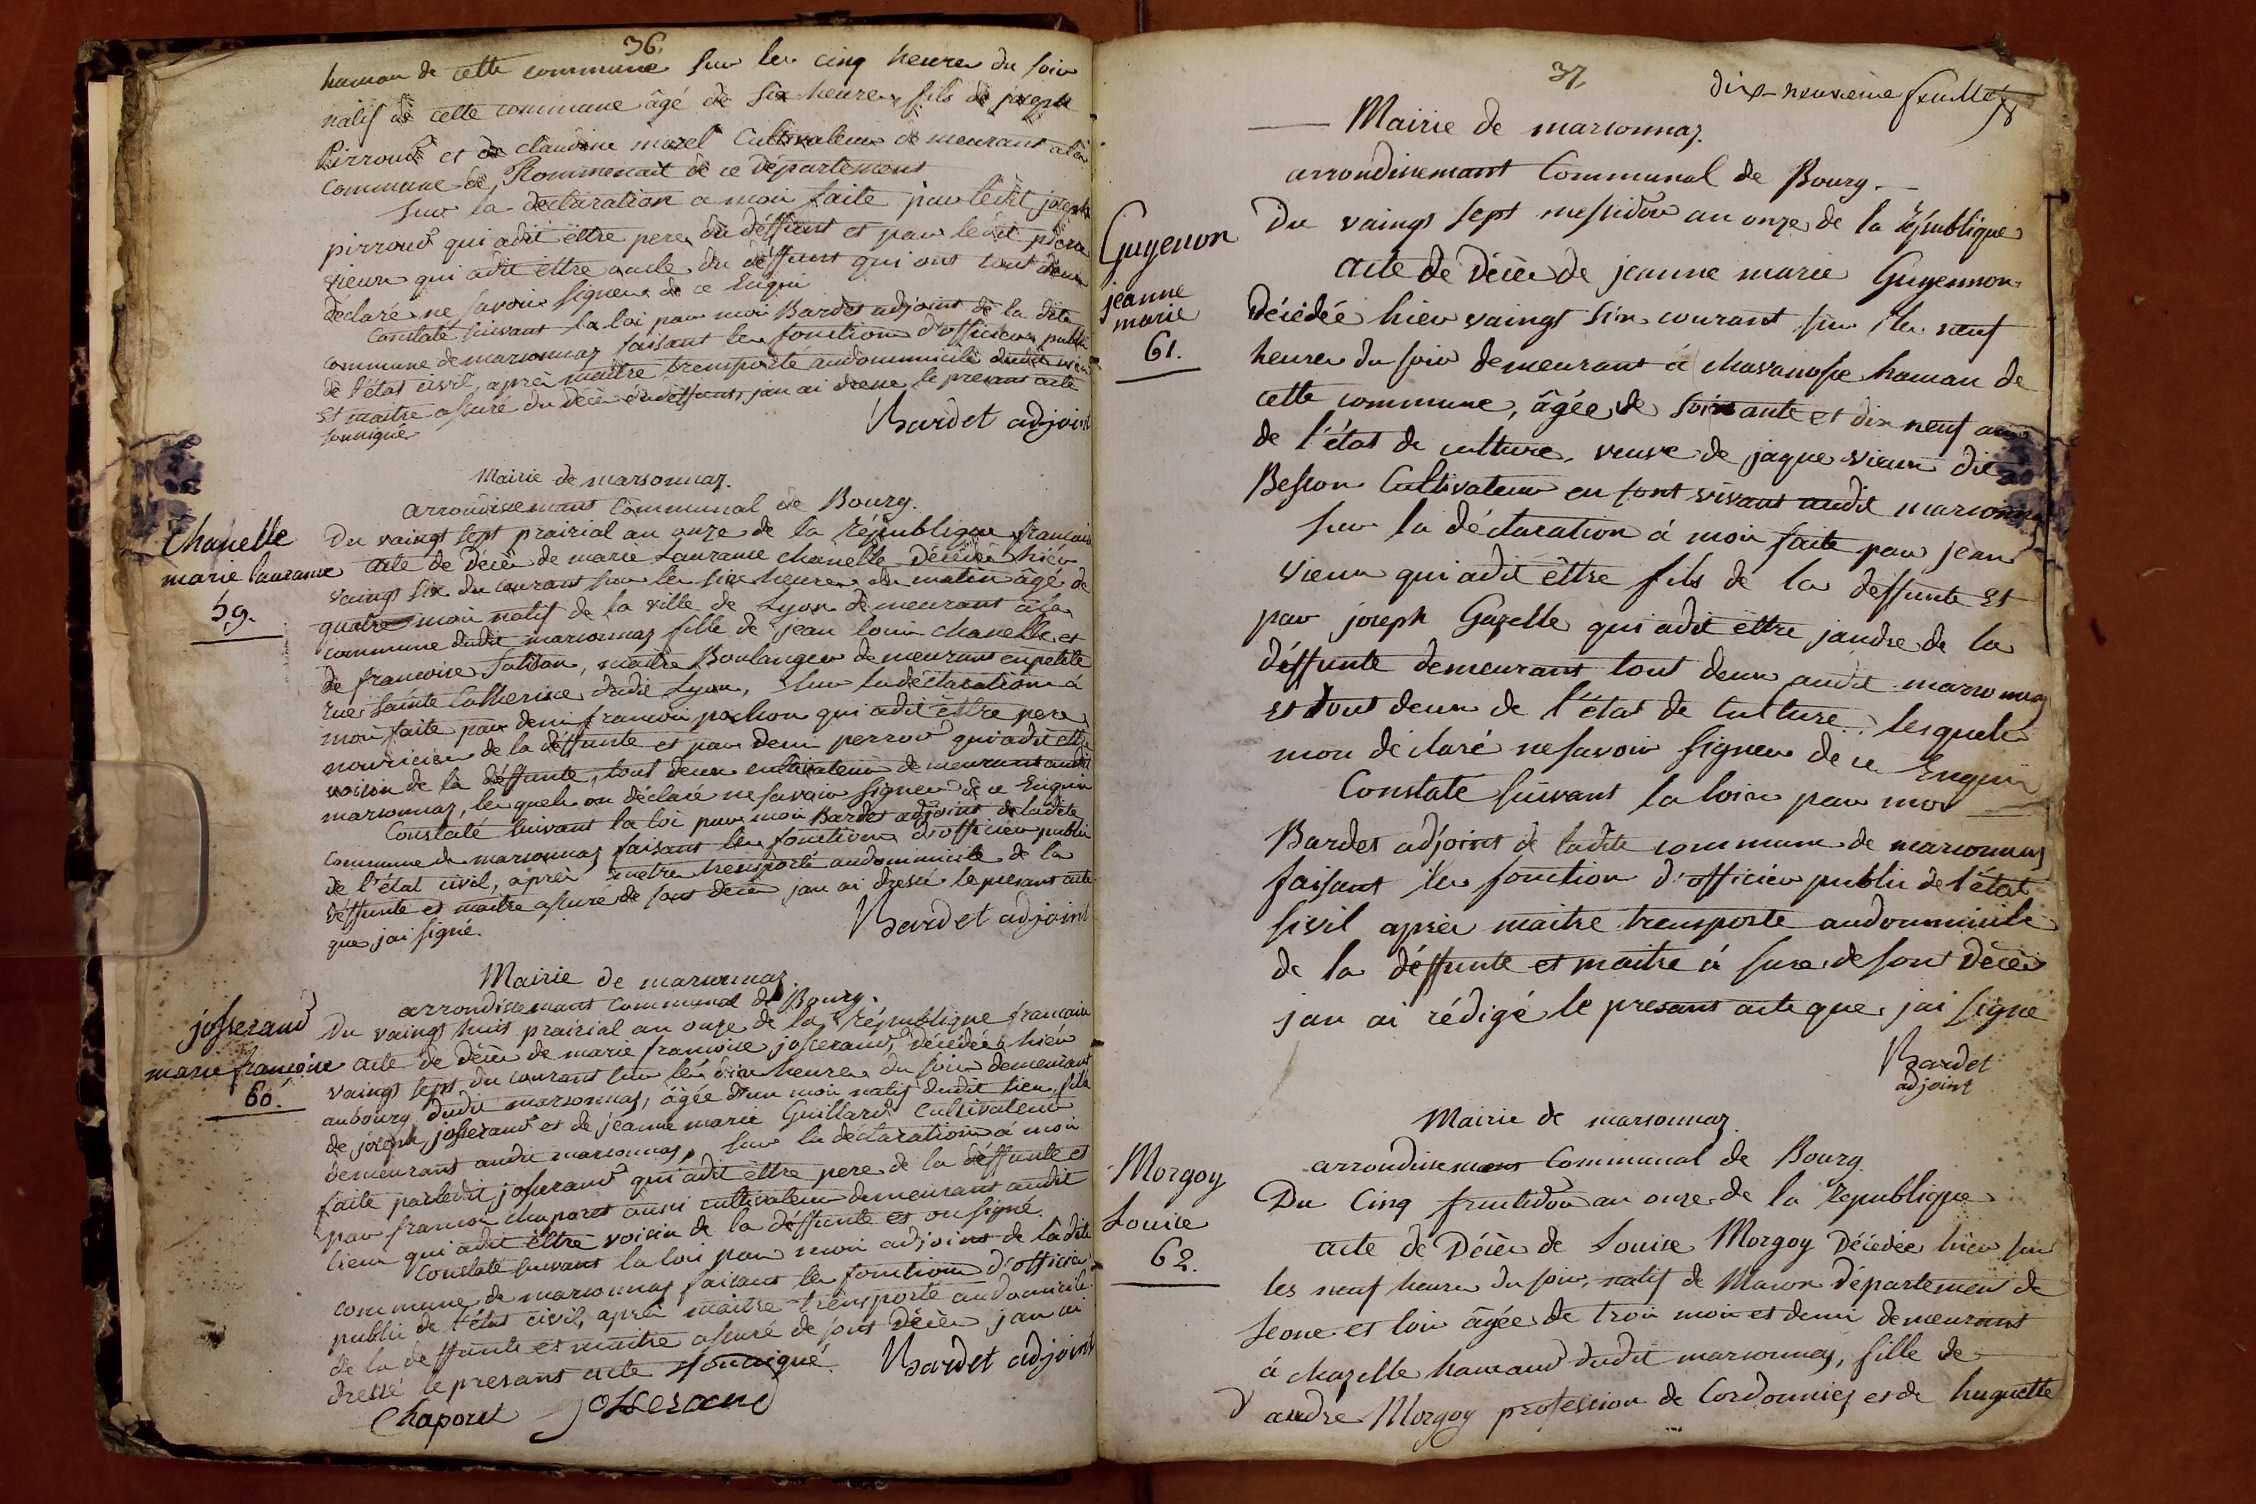 36.
hamau de cette commune sur les cinq heures du soir
natif de cette commune âgé de six heures, fils de joseph
Pirroud et de claudine morel Cultivateur demeurant a la
commune de, de ce département
sur la déclaration a moi faite par ledit joseph
pirroud qui adit ettre pere du déffunt et par ledit pierre
vieux qui adit ettre oncle du déffunt qui ont tout deux
déclaré ne savoir signer de ce Enquis
Constaté suivant la loi par moi Bardet adjoint de la dite
commune de marsonnaz faisant les fonction d'officier public
de l'état civil, après maitre transporté audommicile dudit
Et maitre assuré du décè dudéffunt, jan ai dressé le present acte
soussigné
Bardet adjoint
Mairie de marsonnaz.
arrondisemant Communal de Bourg.
Chanelle
marie laurance
59.
Du vaingt sept prairial an onze de la république francaise
acte de décè de marie Laurance chanelle décédée hiér
vaingt six du courant sur les six heures du matin âgé de
quatre moi natif de la ville de Lyon demeurant à la
commune dudit marsonnaz fille de jean louis chanelle et
de francoise, maitre Boulanger demeurant en petite
rue sainte Catherine dudit Lyon, sur la déclaration a
moi faite par deni francois pochon qui adit ettre pere
nouricier de la déffunte et par deni perroud qui adit ettre
voisin de la déffunte, tout deux cultivateur demeurant audit
marsonnaz, lesquels on déclaré ne savoir signer de ce Enquis
Constaté suivant la loi par moi Bardet adjoint de ladite
commune de marsonnaz faisant les fonction d'officier public
de l'état civil, après metre transporté audommicile de la
déffunte et maitre assuré de sont décè jan ai dressé le present acte
que jai signé.
Bardet adjoint
Mairie de marsonnaz.
arrondissemant Communal de Bourg.
josserand
marie françoise
60.
Du vaingt huit prairial an onze de la république francaise
acte de décè de marie francoise josserand, décédée hiér
vaingt sept du courant sur les dix heures du soir demeurant
aubourg dudit marsonnaz, âgée d'un moi natif dudit lieu, fille
de joseph josserand et de jeanne marie Guillard cultivateur
demeurant audit marsonnaz, sur la déclaration à moi
faite par ledit josserand qui adit ettre pere de la déffunte et
par francoi chaporet aussi cultivateur demeurant audit
lieu qui adit ettre voisin de la déffunte et on signé.
Constaté suivant la loi par moi adjoint de la dite
commune de marsonnaz faisant les fonction d'officier
public de l'état civil, après maitre transporté audomicile
de la deffunte et maitre assuré de sont décès jan ai
dressé le presant acte soussigné.
Bardet adjoint
Chaporet josserand
37,
dix-neuvieme feuillet
Mairie de marsonnaz.
arrondisemant Communal de Bourg.
Guyenon
jeanne
marie
61.
Du vaingt sept messidor an onze de la république
acte de Décès de jeanne marie Guyennon
Décédée hier vaingt six courant sur les neuf
heures du soir demeurant à chavanosse hamau de
cette commune, âgée de soixante et dix neuf ans
de l'état de culture, veuve de jaque vieux dit
Besson Cultivateur en sont vivant audit marsonnaz
sur la déclaration à moi faite par jean
vieux qui adit être fils de la deffunte Et
par joseph Gazelle qui adit ettre jandre de la
déffunte demeurant tout deux audit marsonnaz
Et tout deux de l'état de Culture, lesquels
mon déclaré ne savoir signer de ce Enquis
Constaté suivant la loix par moi
Bardet adjoint de ladite commune de marsonnaz
faisant les fonction d'officier public de l'état
sivil après maitre transporté audommicile
de la déffunte et maitre à suré de sont Décès
jan ai rédigé le presant acte que jai signé
Bardet
adjoint
Mairie de marsonnaz.
arrondisemant Communal de Bourg
Morgoy
Louise
62.
Du Cinq fructidor an onze de la république
acte de Décès de Louise Morgoy Décédée hier sur
les neuf heures du soir, natif de Macon département de
seone et loir âgée de troi moi et demi demeurant
à chazelle hamaud dudit marsonnaz, fille de
andre Morgoy profession de Cordonnier et de huguette